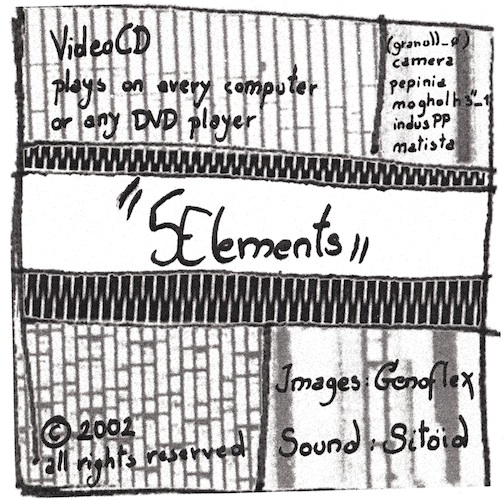 VideoCD
plays on avery computer
or any DVD player
camera
pepinia
indus PP
matista
"5Elements"
Images: Genoflex
Sound: Sitöid
© 2002
all rights reserved